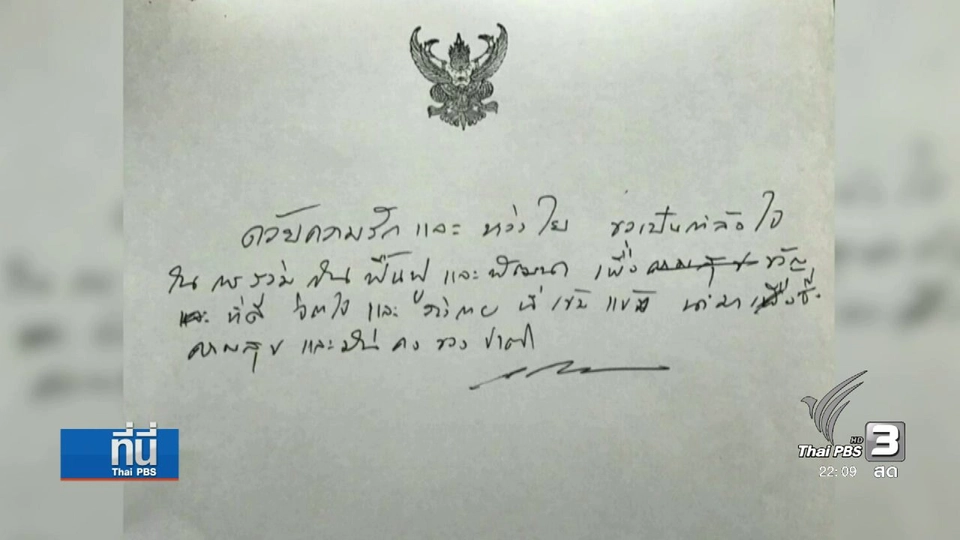 ด้วยความรัก และ ห่วงใย ขอเป็นกำลังใจ
ใน การร่วมกัน ฟื้นฟู และ พัฒนา เพื่อ ความสุข ขวัญ
และ ที่ดี จิตใจ และ ร่างกาย ที่ เข้มแข็ง นำมา ซึ่ง
ความสุข และมั่นคง ของ ชาติ
ที่นี่
Thai PBS
Thai PBS HD 3
22:09 สด